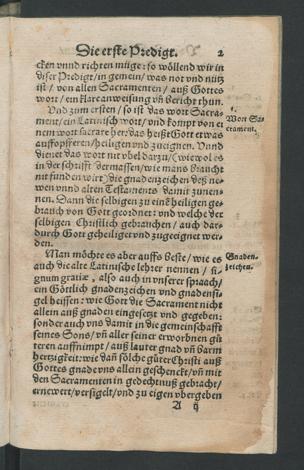 Die erste Predigt. 2
cken vnnd richten müge: so wöllend wir in
diser Predigt/ in gemein/ was not vnd nütz
ist/ von allen Sacramenten/ auß Gottes
wort/ ein klare anweisung vñ bericht thun.
Vnd zum ersten/ so ist das wort Sacra-
ment/ ein Latinisch wort/ vnd kompt von ei
nem wort sacrare her: das heißt Gott etwas
auffopfferen/ heiligen vnd zueignen. Vnnd
dienet das wort nit vbel darzu/ (wiewol es
in der schrifft dermassen/ wie mans braucht
nit funden wirt) die gnadenzeichen deß nü-
wen vnnd alten Testaments damit zunen-
nen. Dann die selbigen zu eim heiligen ge-
brauch von Gott geordnet: vnd welche der
selbigen Christlich gebrauchen/ auch dar-
durch Gott geheiliget vnd zugeeignet wer-
den.
1.
Wort Sa-
crament.
Man möchte es aber auffs beste/ wie es
auch die alte Latinische lehrer nennen/ si-
gnum gratiæ, also auch in vnserer spraach/
ein Göttlich gnadenzeichen vnd gnadensi-
gel heissen: wie Gott die Sacrament nicht
allein auß gnaden eingesetzt vnd gegeben:
sonder auch vns damit in die gemeinschafft
seines Sons/ vñ aller seiner erworbnen gü
teren auffnimpt/ auß lauter gnad vñ barm
hertzigkeit: wie dañ sölche güter Christi auß
Gottes gnade vns allein geschenckt/ vñ mit
den Sacramenten in gedechtnuß gebracht/
ernewert/ versigelt/ vnd zu eigen vbergeben
Gnaden-
zeichen.
A ij